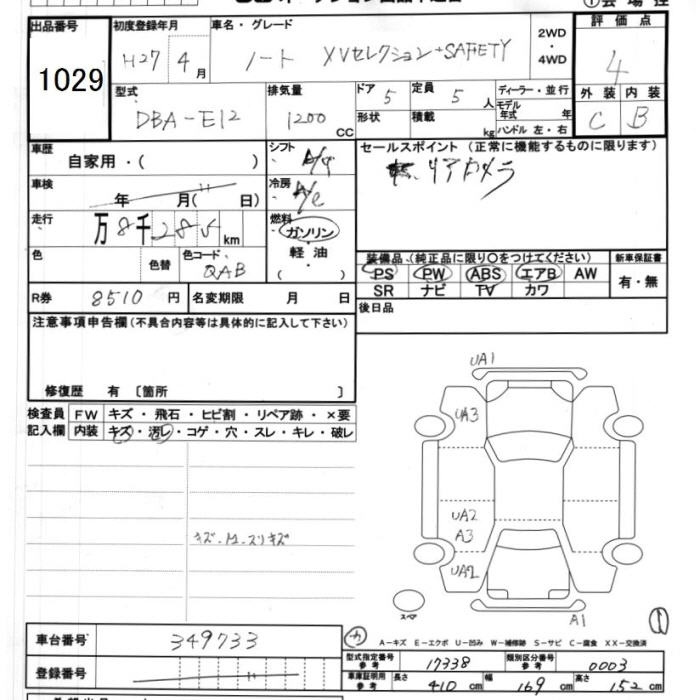 出品番号
1029
初度登録年月
H27 4月
車名・グレード
ノート XVセレクション+SAFETY
2WD
・
4WD
評価点
4
外装 内装
C B
型式
DBA-E12
排気量
1200 CC
ドア 5
定員 5 人
形状
積載 kg
ディーラー・並行
モデル年式 年
ハンドル 左・右
車歴
自家用・( )
シフト
セールスポイント (正常に機能するものに限ります)
リアカメラ
車検
年 月( 日)
冷房
A/C
走行
万8千285km
燃料
ガソリン
・
軽油
・
( )
色
色替
色コード
QAB
装備品 (純正品に限り○をつけてください)
PS PW ABS エアB AW
SR ナビ TV カワ
新車保証書
有・無
R券 8510 円
名変期限 月 日
後日品
注意事項申告欄(不具合内容等は具体的に記入して下さい)
修復歴 有 〔箇所 〕
検査員記入欄
FW キズ・飛石・ヒビ割・リペア跡・×要
内装 キズ・汚レ・コゲ・穴・スレ・キレ・破レ
キズ・
スリキズ
UA1
UA3
UA2
A3
UA2
A1
スペア
A-キズ E-エクボ U-凹み W-補修跡 S-サビ C-腐食 XX-交換済
車台番号 349733
登録番号
型式指定番号 参考 17338
類別区分番号 参考 0003
車庫証明用 参考 長さ 410 cm 幅 169 cm 高さ 152 cm